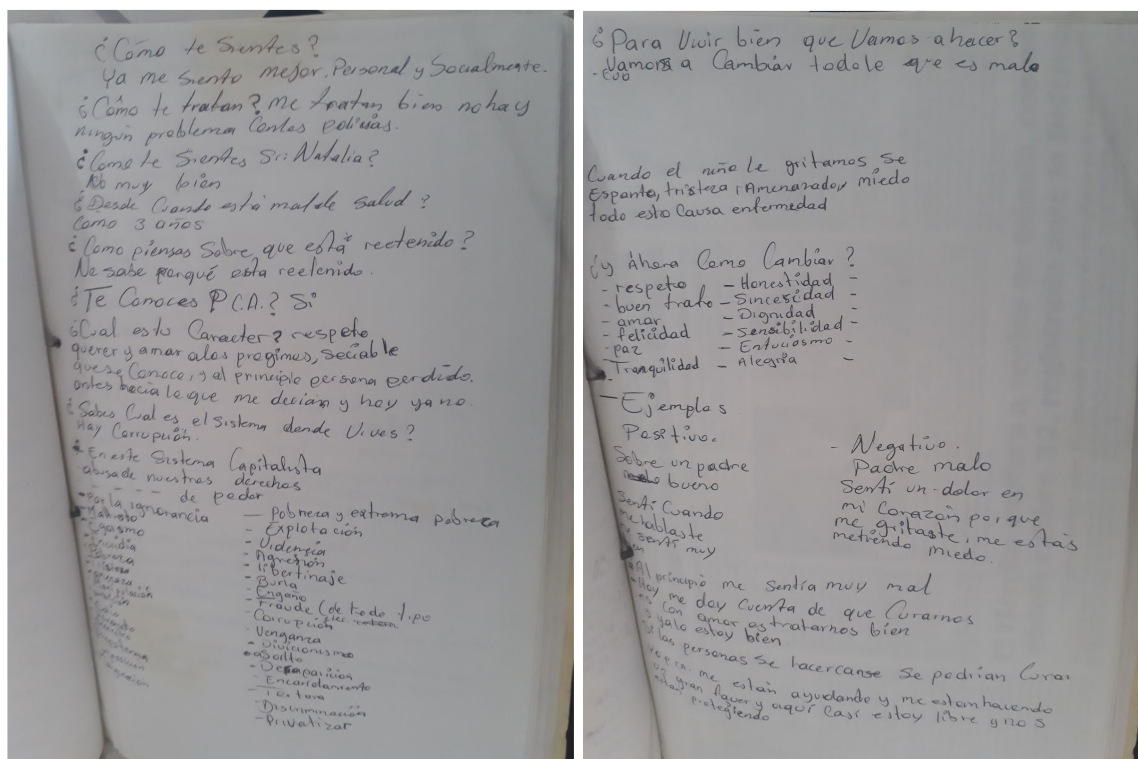 ¿Cómo te Sientes?
Ya me siento mejor, Personal y Socialmente.
¿Cómo te tratan? Me tratan bien no hay
ningún problema Contas policías.
¿Como te Sientes Sr: Natalia?
No muy bien
¿Desde Cuando está mal de Salud?
Como 3 años
¿Como piensas Sobre que está reetenido?
No sabe porqué esta reetenido.
¿Te Conoces P.C.A.? Si
¿Cual es tu Caracter? respeto
querer y amar alos progimos, Sociable
que se Conoce, y al principio persona perdido.
antes hacia lo que me decian y hoy ya no.
¿Sabes Cual es el Sistema donde Vives?
Hay Corrupción.
En este Sistema Capitalista
abusa de nuestros derechos
- - - - - de poder
Por la ignorancia
Maltrato
Egoismo
Envidia
- Pobreza y extrema pobreza
- Explotación
- Violencia
- Agresión
- libertinaje
- Burla
- Engaño
- Fraude (de todo tipo
- Corrupción
- Venganza
- Divicionismo
- Desaparición
- Encarcelamiento
- Tortura
- Discriminación
- Privatizar
¿Para Vivir bien que Vamos a hacer?
Vamos a Cambiar todo le que es malo
Cuando el niño le gritamos Se
Espanta, tristeza, Amenazado, y miedo
todo esto Causa enfermedad
¿Y Ahora Como Cambiar?
- respeto - Honestidad -
- buen trato - Sinceridad -
- amar - Dignidad -
- felicidad - Sensibilidad -
- paz - Entuciosmo -
- Tranquilidad - Alegria -
- Ejemplos
Positivo.
Sobre un padre
bueno
Sentí Cuando
me hablaste
sentí muy
- Negativo.
Padre malo
Sentí un dolor en
mi Corazón porque
me gritaste, me estás
metiendo miedo.
Al principio me Sentía muy mal
Hoy me doy Cuenta de que Curarnos
es Con amor es tratarnos bien
y ya lo estoy bien
Si las personas Se hacercanse Se podrían Curar
me están ayudando y me estan haciendo
un gran favor y aquí Casi estoy libre y nos
están protegiendo